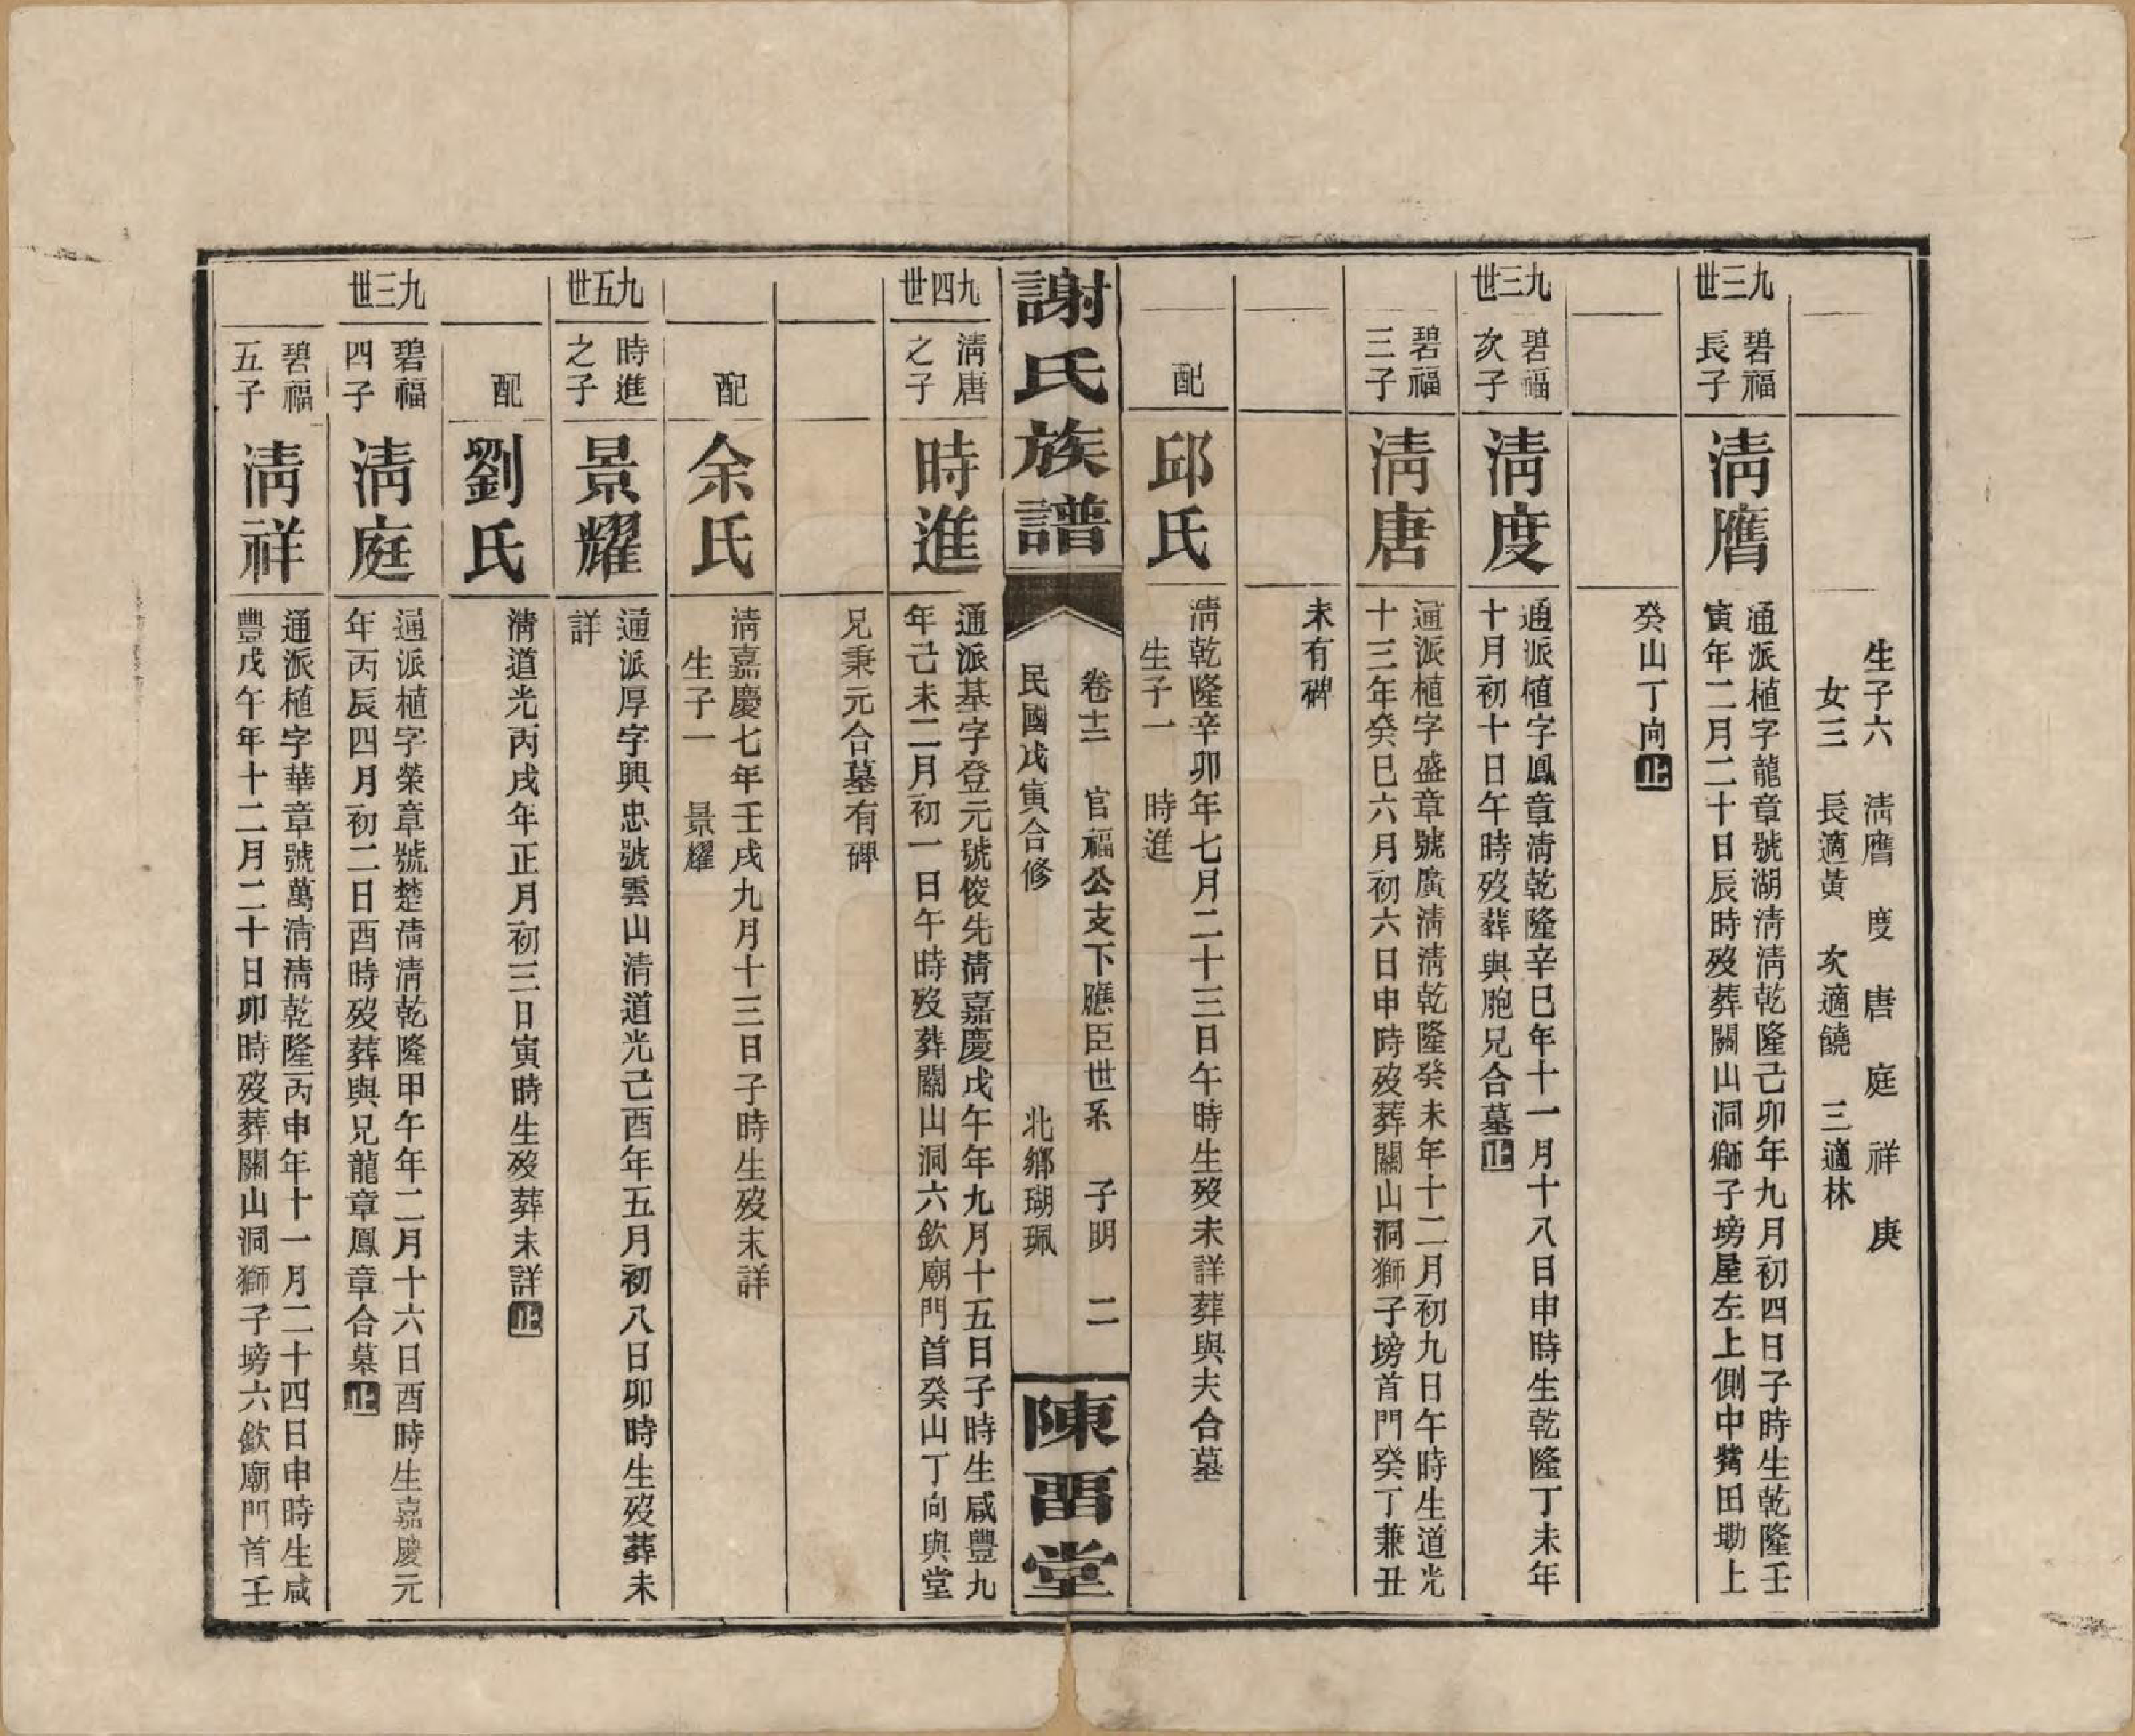 生子六 淸膺 度 唐 庭 祥 庚
女三 長適黃 次適饒 三適林
九三世
碧福
長子
淸膺
通派植字龍章號湖淸淸乾隆己卯年九月初四日子時生乾隆壬
寅年二月二十日辰時歿葬關山洞獅子塝屋左上側中臂田墈上
癸山丁向止
九三世
碧福
次子
淸度
通派値字鳳章淸乾隆辛巳年十一月十八日申時生乾隆丁未年
十月初十日午時歿葬與胞兄合墓止
碧福
三子
淸唐
通派植字盛章號廣淸淸乾隆癸未年十二月初九日午時生道光
十三年癸巳六月初六日申時歿葬關山洞獅子塝首門癸丁兼丑
未有碑
配
邱氏
淸乾隆辛卯年七月二十三日午時生歿未詳葬與夫合墓
生子一 時進
謝氏族譜
卷十二 官福公支下應臣世系 子明 二
民國戊寅合修 北鄉瑚珮
陳畱堂
九四世
淸唐
之子
時進
通派基字登元號俊先淸嘉慶戊午年九月十五日子時生咸豐九
年己未二月初一日午時歿葬關山洞六欽廟門首癸山丁向與堂
兄秉元合墓有碑
配
余氏
淸嘉慶七年壬戌九月十三日子時生歿未詳
生子一 景耀
九五世
時進
之子
景耀
通派厚字興忠號雲山淸道光己酉年五月初八日卯時生歿葬未
詳
配
劉氏
淸道光丙戌年正月初三日寅時生歿葬未詳止
九三世
碧福
四子
淸庭
通派植字榮章號楚淸淸乾隆甲午年二月十六日酉時生嘉慶元
年丙辰四月初二日酉時歿葬與兄龍章鳳章合墓止
碧福
五子
淸祥
通派植字華章號萬淸淸乾隆丙申年十一月二十四日申時生咸
豐戊午年十二月二十日卯時歿葬關山洞獅子塝六欽廟門首壬